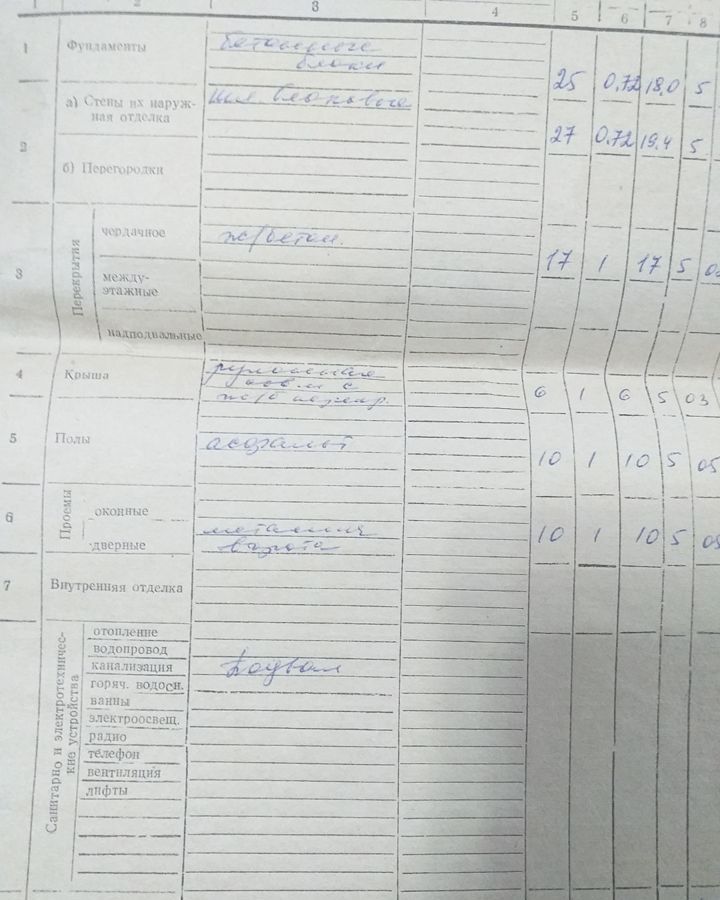 1 2 3 4 5 6 7 8
1 Фундаменты бетонные
блоки 25 0,72 18,0 5
2 а) Стены их наруж-
ная отделка шл. блоковые 27 0,72 19,4 5
б) Перегородки
3 Перекрытия
чердачное ж/бетон. 17 1 17 5
между-
этажные
надподвальные
4 Крыша рулонная
6 1 6 5 03
5 Полы асфальт 10 1 10 5 05
6 Проемы
оконные
дверные металлич
ворота 10 1 10 5
7 Внутренняя отделка
Санитарно и электротехничес-
кие устройства
отопление
водопровод
канализация подвал
горяч. водосн.
ванны
электроосвещ.
радио
телефон
вентиляция
лифты